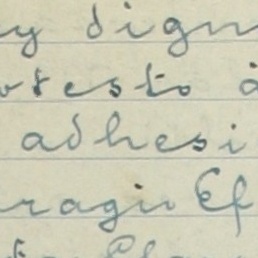 y dign
otesto à
adhesi
ragio Ef